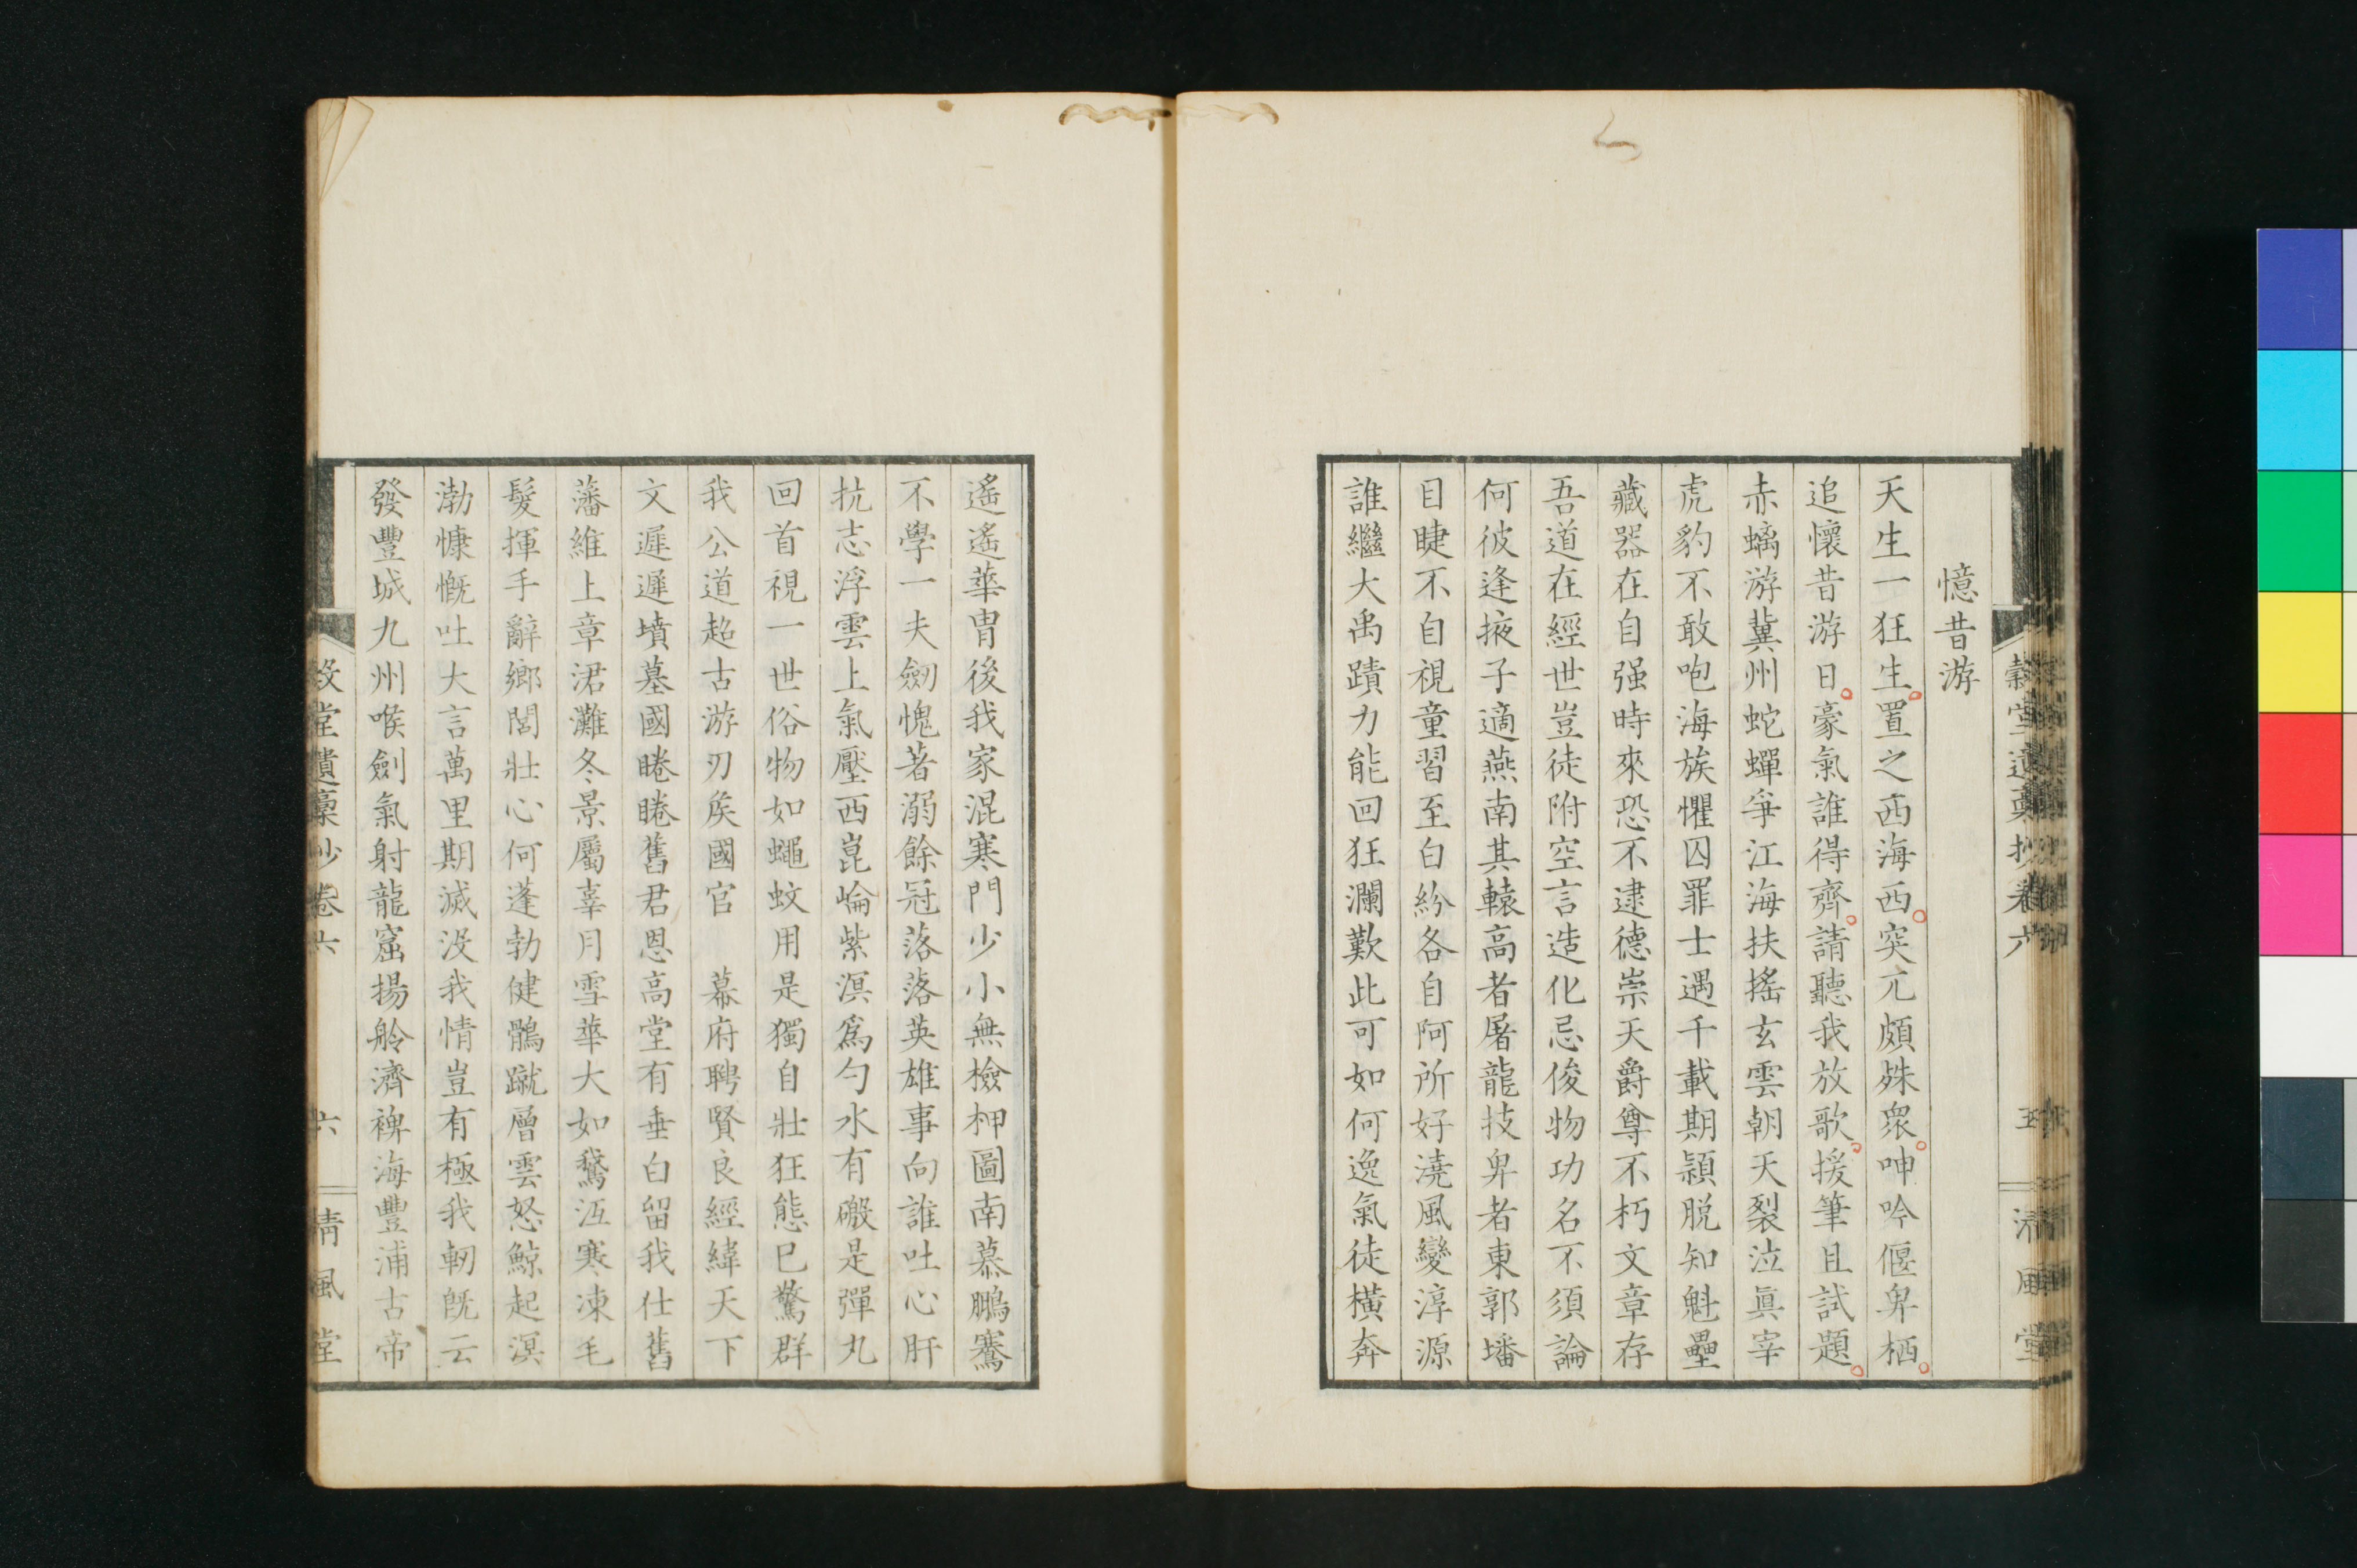 憶昔游
天生一狂生置之西海西突亢頗殊衆呻吟偃卑栖
追懷昔游日豪氣誰得齊請聽我放歌援筆且試題
赤螭游冀州蛇蟬爭江海扶搖玄雲朝天裂泣眞宰
虎豹不敢咆海族懼囚罪士遇千載期穎脱知魁壘
藏器在自强時來恐不逮德崇天爵尊不朽文章存
吾道在經世豈徒附空言造化忌俊物功名不須論
何彼逢掖子適燕南其轅高者屠龍技卑者東郭墦
目睫不自視童習至白紛各自阿所好澆風變淳源
誰繼大禹蹟力能回狂瀾歎此可如何逸氣徒橫奔
穀堂遺稾抄卷六
五
清風堂
遙遙華胄後我家混寒門少小無檢柙圖南慕鵬騫
不學一夫劒愧著溺餘冠落落英雄事向誰吐心肝
抗志浮雲上氣壓西崑崘紫溟爲勺水有礮是彈丸
回首視一世俗物如蠅蚊用是獨自壯狂態已驚群
我公道超古游刃矦國官 幕府聘賢良經緯天下
文遲遲墳墓國睠睠舊君恩高堂有垂白留我仕舊
藩維上章涒灘冬景屬辜月雪華大如鵞沍寒凍毛
髮揮手辭鄉閭壯心何蓬勃健鶻蹴層雲怒鯨起溟
渤慷慨吐大言萬里期滅没我情豈有極我軔旣云
發豐城九州喉劍氣射龍窟揚舲濟裨海豐浦古帝
穀堂遺稾抄卷六
六
清風堂